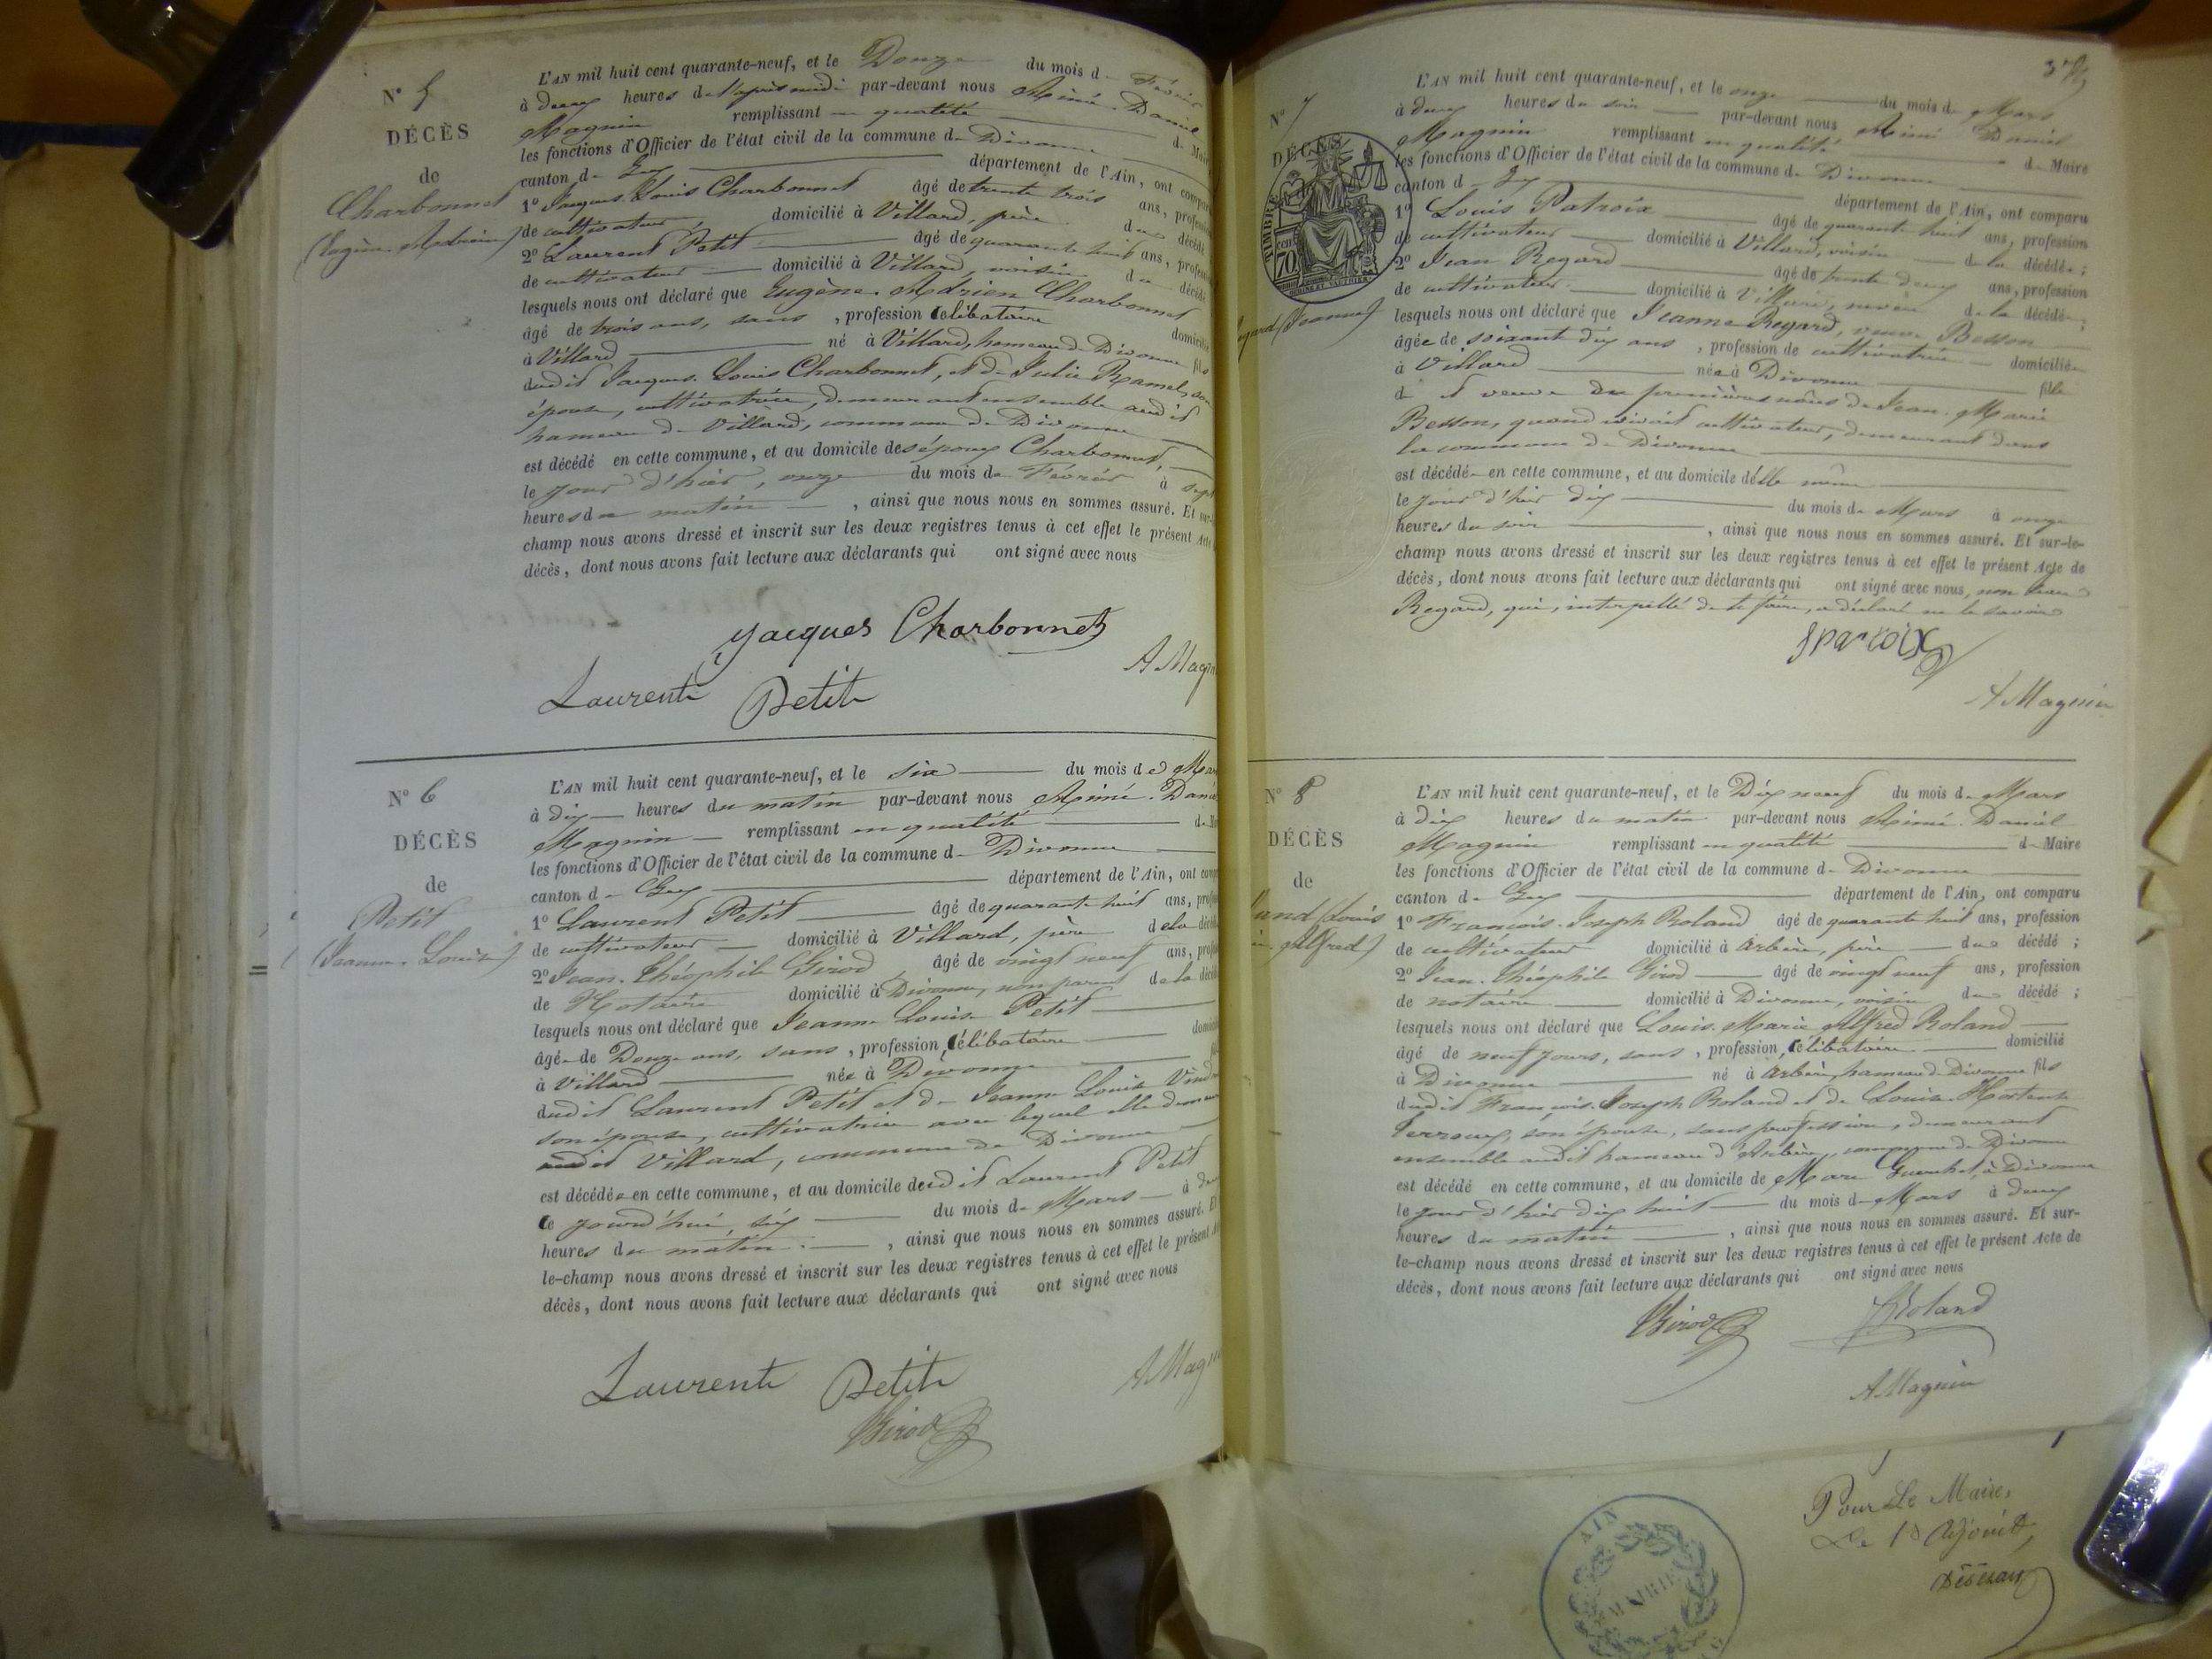 N° 5
DÉCÈS
de
Charbonnet
(Eugène Adrien)
L'AN mil huit cent quarante-neuf, et le Douze du mois de Février
à deux heures de l'après midi par-devant nous Aimé Daniel
Magnin remplissant en qualité de Mai
les fonctions d'Officier de l'état civil de la commune de Divonne
canton de Gex département de l'Ain, ont compar
1° Jacques Louis Charbonnet âgé de trente trois ans, profession
de cultivateur domicilié à Villard, père du décédé
2° Laurent Petit âgé de quarante huit ans, profession
de cultivateur domicilié à Villard, voisin du décédé
lesquels nous ont déclaré que Eugène Adrien Charbonnet
âgé de trois ans, sans , profession célibataire domicilié
à Villard né à Villard, hameau de Divonne fils
dudit Jacques Louis Charbonnet, et de Julie Ramel, son
épouse, cultivatrice, demeurant ensemble audit
hameau de Villard, commune de Divonne
est décédé en cette commune, et au domicile des époux Charbonnet,
le jour d'hier, onze du mois de Février à sept
heures du matin , ainsi que nous nous en sommes assuré. Et sur-le-
champ nous avons dressé et inscrit sur les deux registres tenus à cet effet le présent Acte
décès, dont nous avons fait lecture aux déclarants qui ont signé avec nous
Jacques Charbonnet
A Magnin
Laurent Petit
N° 6
DÉCÈS
de
Petit
(Jeanne Louise)
L'AN mil huit cent quarante-neuf, et le six du mois de Mars
à dix heures du matin par-devant nous Aimé Daniel
Magnin remplissant en qualité de M
les fonctions d'Officier de l'état civil de la commune de Divonne
canton de Gex département de l'Ain, ont comp
1° Laurent Petit âgé de quarante huit ans, prof
de cultivateur domicilié à Villard, père de la décé
2° Jean Théophile Girod âgé de vingt neuf ans, prof
de Notaire domicilié à Divonne, non parent de la décé
lesquels nous ont déclaré que Jeanne Louise Petit
âgée de Douze ans, sans , profession, célibataire domici
à Villard née à Divonne
dudit Laurent Petit et de Jeanne Louise
son épouse, cultivatrice avec lequel elle demeur
audit Villard, commune de Divonne
est décédée en cette commune, et au domicile dudit Laurent Petit
ce jourd'hui, six du mois de Mars à deux
heures du matin , ainsi que nous nous en sommes assuré. Et
le-champ nous avons dressé et inscrit sur les deux registres tenus à cet effet le présent A
décès, dont nous avons fait lecture aux déclarants qui ont signé avec nous
Laurent Petit
A Magnin
Girod
N° 7
DÉCÈS
TIMBRE
70
gard (Jeanne)
L'AN mil huit cent quarante-neuf, et le onze du mois de Mars
à deux heures du soir par-devant nous Aimé Daniel
Magnin remplissant en qualité de Maire
les fonctions d'Officier de l'état civil de la commune de Divonne
canton de Gex département de l'Ain, ont comparu
1° Louis Patroix âgé de quarante huit ans, profession
de cultivateur domicilié à Villard, voisin de la décédée ;
2° Jean Regard âgé de trente deux ans, profession
de cultivateur domicilié à Villard, neveu de la décédée ;
lesquels nous ont déclaré que Jeanne Regard, veuve Besson
âgée de soixante dix ans , profession de cultivatrice domiciliée
à Villard née à Divonne fille
d et veuve en premières noces de Jean Marie
Besson, quand vivait cultivateur, demeurant dans
la commune de Divonne
est décédée en cette commune, et au domicile d'elle même
le jour d'hier dix du mois de Mars à onze
heures du soir , ainsi que nous nous en sommes assuré. Et sur-le-
champ nous avons dressé et inscrit sur les deux registres tenus à cet effet le présent Acte de
décès, dont nous avons fait lecture aux déclarants qui ont signé avec nous, non Jean
Regard, qui, interpellé de le faire, a déclaré ne le savoir
A Magnin
N° 8
DÉCÈS
de
land (Louis
Alfred)
L'AN mil huit cent quarante-neuf, et le Dix neuf du mois de Mars
à dix heures du matin par-devant nous Aimé Daniel
Magnin remplissant en qualité de Maire
les fonctions d'Officier de l'état civil de la commune de Divonne
canton de Gex département de l'Ain, ont comparu
1° François Joseph Roland âgé de quarante huit ans, profession
de cultivateur domicilié à Arbère, père du décédé ;
2° Jean Théophile Girod âgé de vingt neuf ans, profession
de notaire domicilié à Divonne, voisin du décédé ;
lesquels nous ont déclaré que Louis Marie Alfred Roland
âgé de neuf jours, sans , profession, célibataire domicilié
à Divonne né à Arbère, hameau de Divonne fils
dudit François Joseph Roland et de Louise Hortense
son épouse, sans profession, demeurant
ensemble audit hameau d'Arbère, commune de Divonne
est décédé en cette commune, et au domicile de Marc à Divonne
le jour d'hier dix huit du mois de Mars à deux
heures du matin , ainsi que nous nous en sommes assuré. Et sur-
le-champ nous avons dressé et inscrit sur les deux registres tenus à cet effet le présent Acte de
décès, dont nous avons fait lecture aux déclarants qui ont signé avec nous
Girod Roland
A Magnin
Pour Le Maire,
Le 1er Adjoint,
AIN
MAIRIE